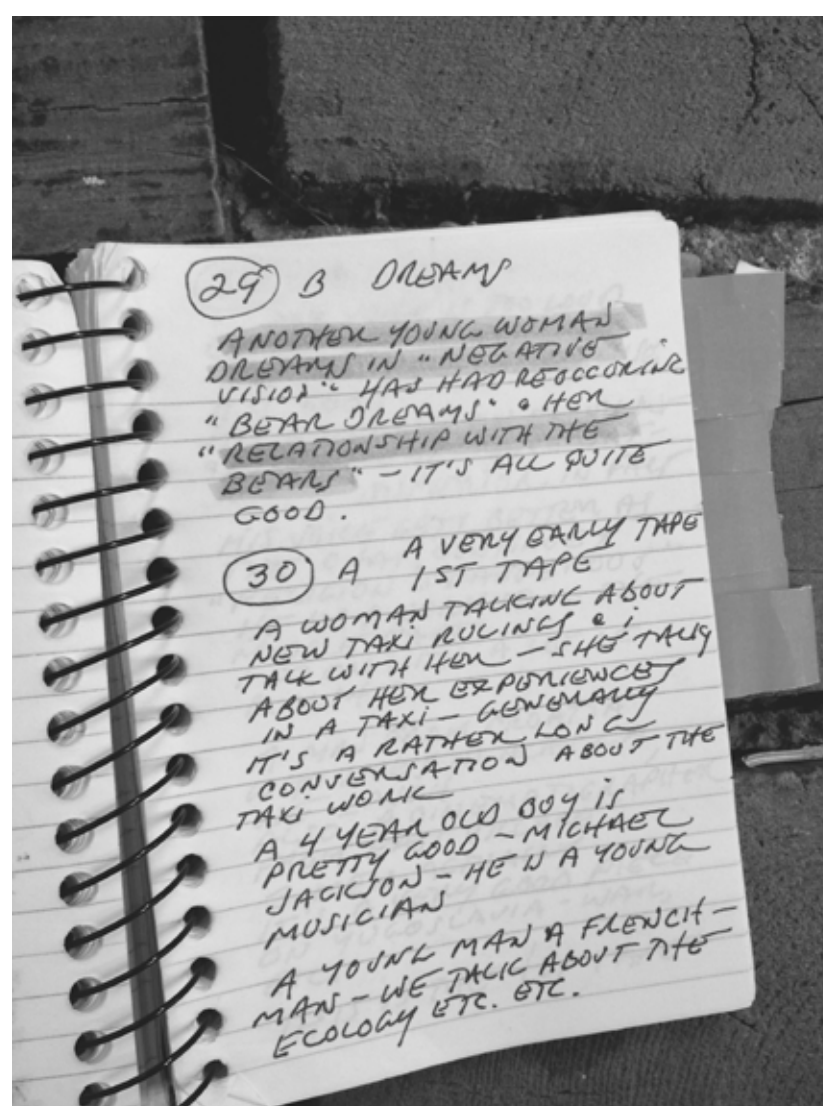 29 B DREAMS
ANOTHER YOUNG WOMAN
DREAMS IN "NEGATIVE
VISION" HAS HAD REOCCURING
"BEAR DREAMS" & HER
"RELATIONSHIP WITH THE
BEARS" - IT'S ALL QUITE
GOOD.
30 A A VERY EARLY TAPE
1ST TAPE
A WOMAN TALKING ABOUT
NEW TAXI RULINGS & i
TALK WITH HER - SHE TALKS
ABOUT HER EXPERIENCES
IN A TAXI - GENERALLY
IT'S A RATHER LONG
CONVERSATION ABOUT THE
TAXI WORK
A 4 YEAR OLD BOY IS
PRETTY GOOD - MICHAEL
JACKSON - HE IS A YOUNG
MUSICIAN
A YOUNG MAN A FRENCH-
MAN - WE TALK ABOUT THE
ECOLOGY ETC. ETC.